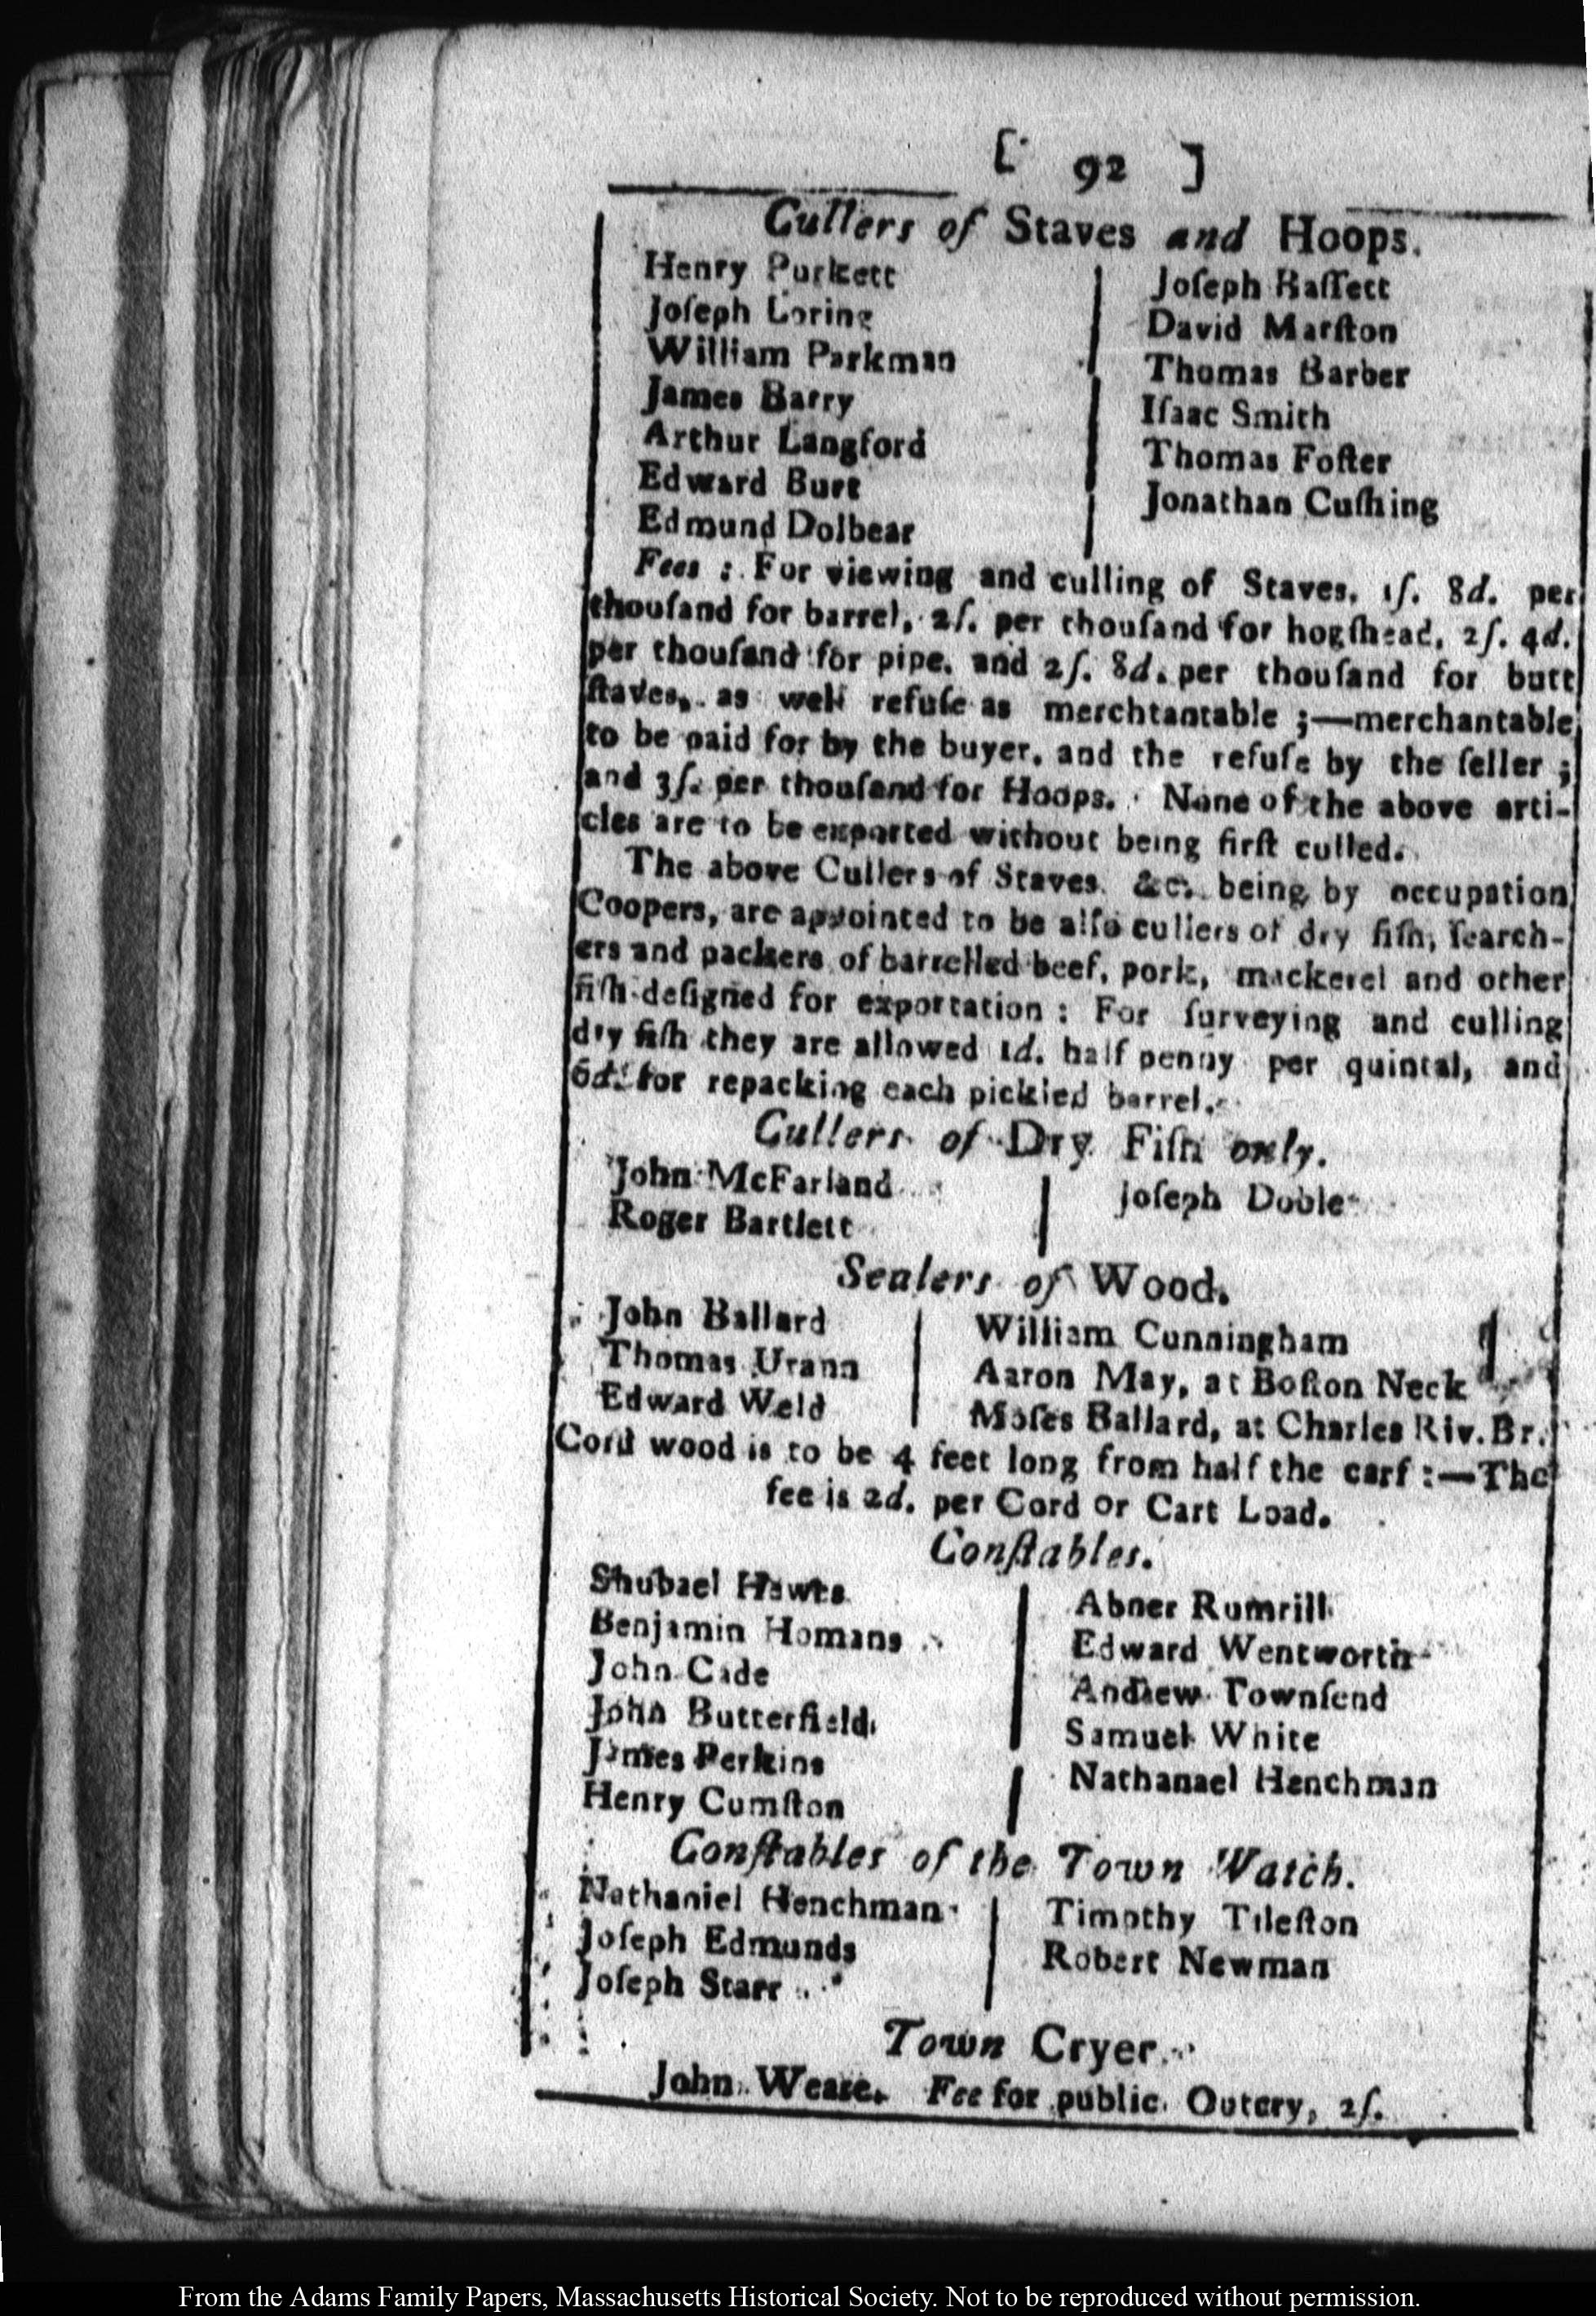 [ 92 ]
Cullers of Staves and Hoops.
Henry Purkett
Joſeph Loring
William Parkman
James Barry
Arthur Langford
Edward Burt
Edmund Dolbear
Joſeph Baſſett
David Marſton
Thomas Barber
Iſaac Smith
Thomas Foſter
Jonathan Cuſhing
Fees : For viewing and culling of Staves, 1ſ. 8d. per
thouſand for barrel, 2ſ. per thouſand for hogſhead, 2ſ. 4d.
per thouſand for pipe, and 2ſ. 8d. per thouſand for butt
ſtaves, as well refuſe as merchtantable ;—merchantable
to be paid for by the buyer, and the refuſe by the ſeller ;
and 3ſ. per thouſand for Hoops. None of the above arti-
cles are to be exported without being firſt culled.
The above Cullers of Staves, &c. being by occupation
Coopers, are appointed to be alſo cullers of dry fiſh, ſearch-
ers and packers of barrelled beef, pork, mackerel and other
fiſh deſigned for exportation : For ſurveying and culling
dry fiſh they are allowed 1d. half penny per quintal, and
6d. for repacking each pickled barrel.
Cullers of Dry Fiſh only.
John McFarland
Roger Bartlett
Joſeph Doble
Sealers of Wood.
John Ballard
Thomas Urann
Edward Weld
William Cunningham
Aaron May, at Boſton Neck
Moſes Ballard, at Charles Riv. Br.
Cord wood is to be 4 feet long from half the carf :—The
fee is 2d. per Cord or Cart Load.
Conſtables.
Shubael Hewes
Benjamin Homans
John Cade
John Butterfield
James Perkins
Henry Cumſton
Abner Rumrill
Edward Wentworth
Andrew Townſend
Samuel White
Nathanael Henchman
Conſtables of the Town Watch.
Nathaniel Henchman
Joſeph Edmunds
Joſeph Starr
Timothy Tileſton
Robert Newman
Town Cryer.
John Weare. Fee for public Outcry, 2ſ.
From the Adams Family Papers, Massachusetts Historical Society. Not to be reproduced without permission.